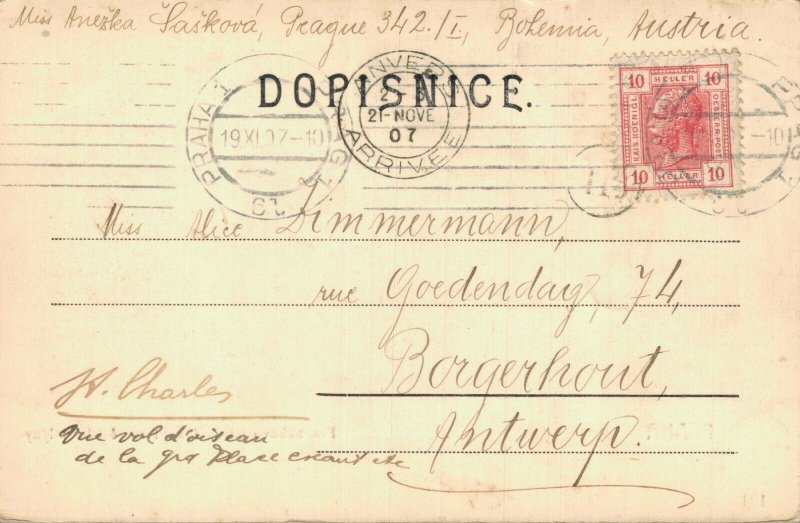 Miss Anežka Šašková, Prague 342./I., Bohemia, Austria.
DOPISNICE.
PRAHA 1
19.XI.07-10
PRAG 1
ANVERS
21-NOVE
07
ARRIVEE
10 HELLER 10
KAIS. KOENIGL.
OESTERR. POST
10 HELLER 10
Miss Alice Zimmermann,
rue Goedendag, 74,
Borgerhout,
Antwerp.
St. Charles
vue vol d'oiseau
de la gra Place